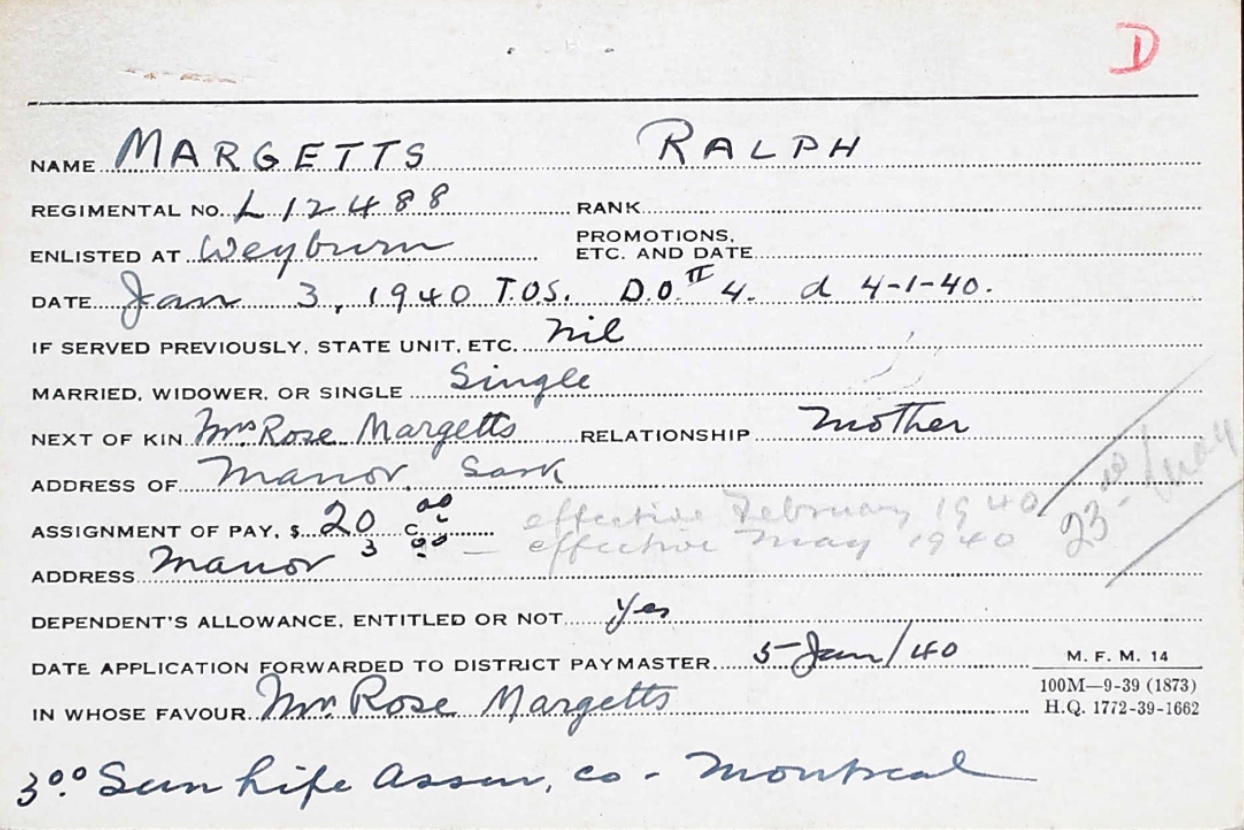 D
NAME MARGETTS RALPH
REGIMENTAL NO. L 12488 RANK
ENLISTED AT Weyburn PROMOTIONS, ETC. AND DATE
DATE Jan 3, 1940 T.O.S. D.O. II 4. d 4-1-40.
IF SERVED PREVIOUSLY, STATE UNIT, ETC. nil
MARRIED, WIDOWER, OR SINGLE Single
NEXT OF KIN Mrs Rose Margetts RELATIONSHIP Mother
ADDRESS OF Manor, Sask
ASSIGNMENT OF PAY, $ 20 C. 00 effective February 1940
3 00 — effective May 1940 23.00 May
ADDRESS Manor
DEPENDENT'S ALLOWANCE, ENTITLED OR NOT Yes
DATE APPLICATION FORWARDED TO DISTRICT PAYMASTER 5 Jan/40 M. F. M. 14
100M—9-39 (1873)
IN WHOSE FAVOUR Mrs Rose Margetts H.Q. 1772-39-1662
3.00 Sun Life Assur, co - Montreal